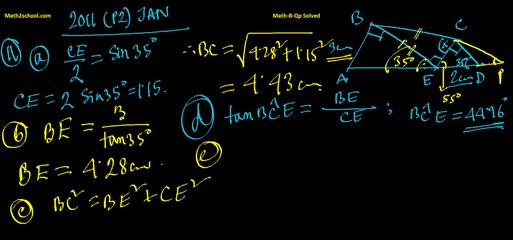 Math2school.com
2011 (P2) JAN
Math-B-Qp Solved
(a) CE/2 = Sin35°
CE = 2 Sin35° = 1.15.
(b) BE = 3/tan35°
BE = 4.28cm.
(c) BC² = BE² + CE²
∴ BC = √4.28² + 1.15²
= 4.43 cm
(d) tan BĈE = BE/CE ; BĈE = 44.96°
(e)
B
C
3cm
(x)
35°
35°
A
E
2cm
D
P
55°